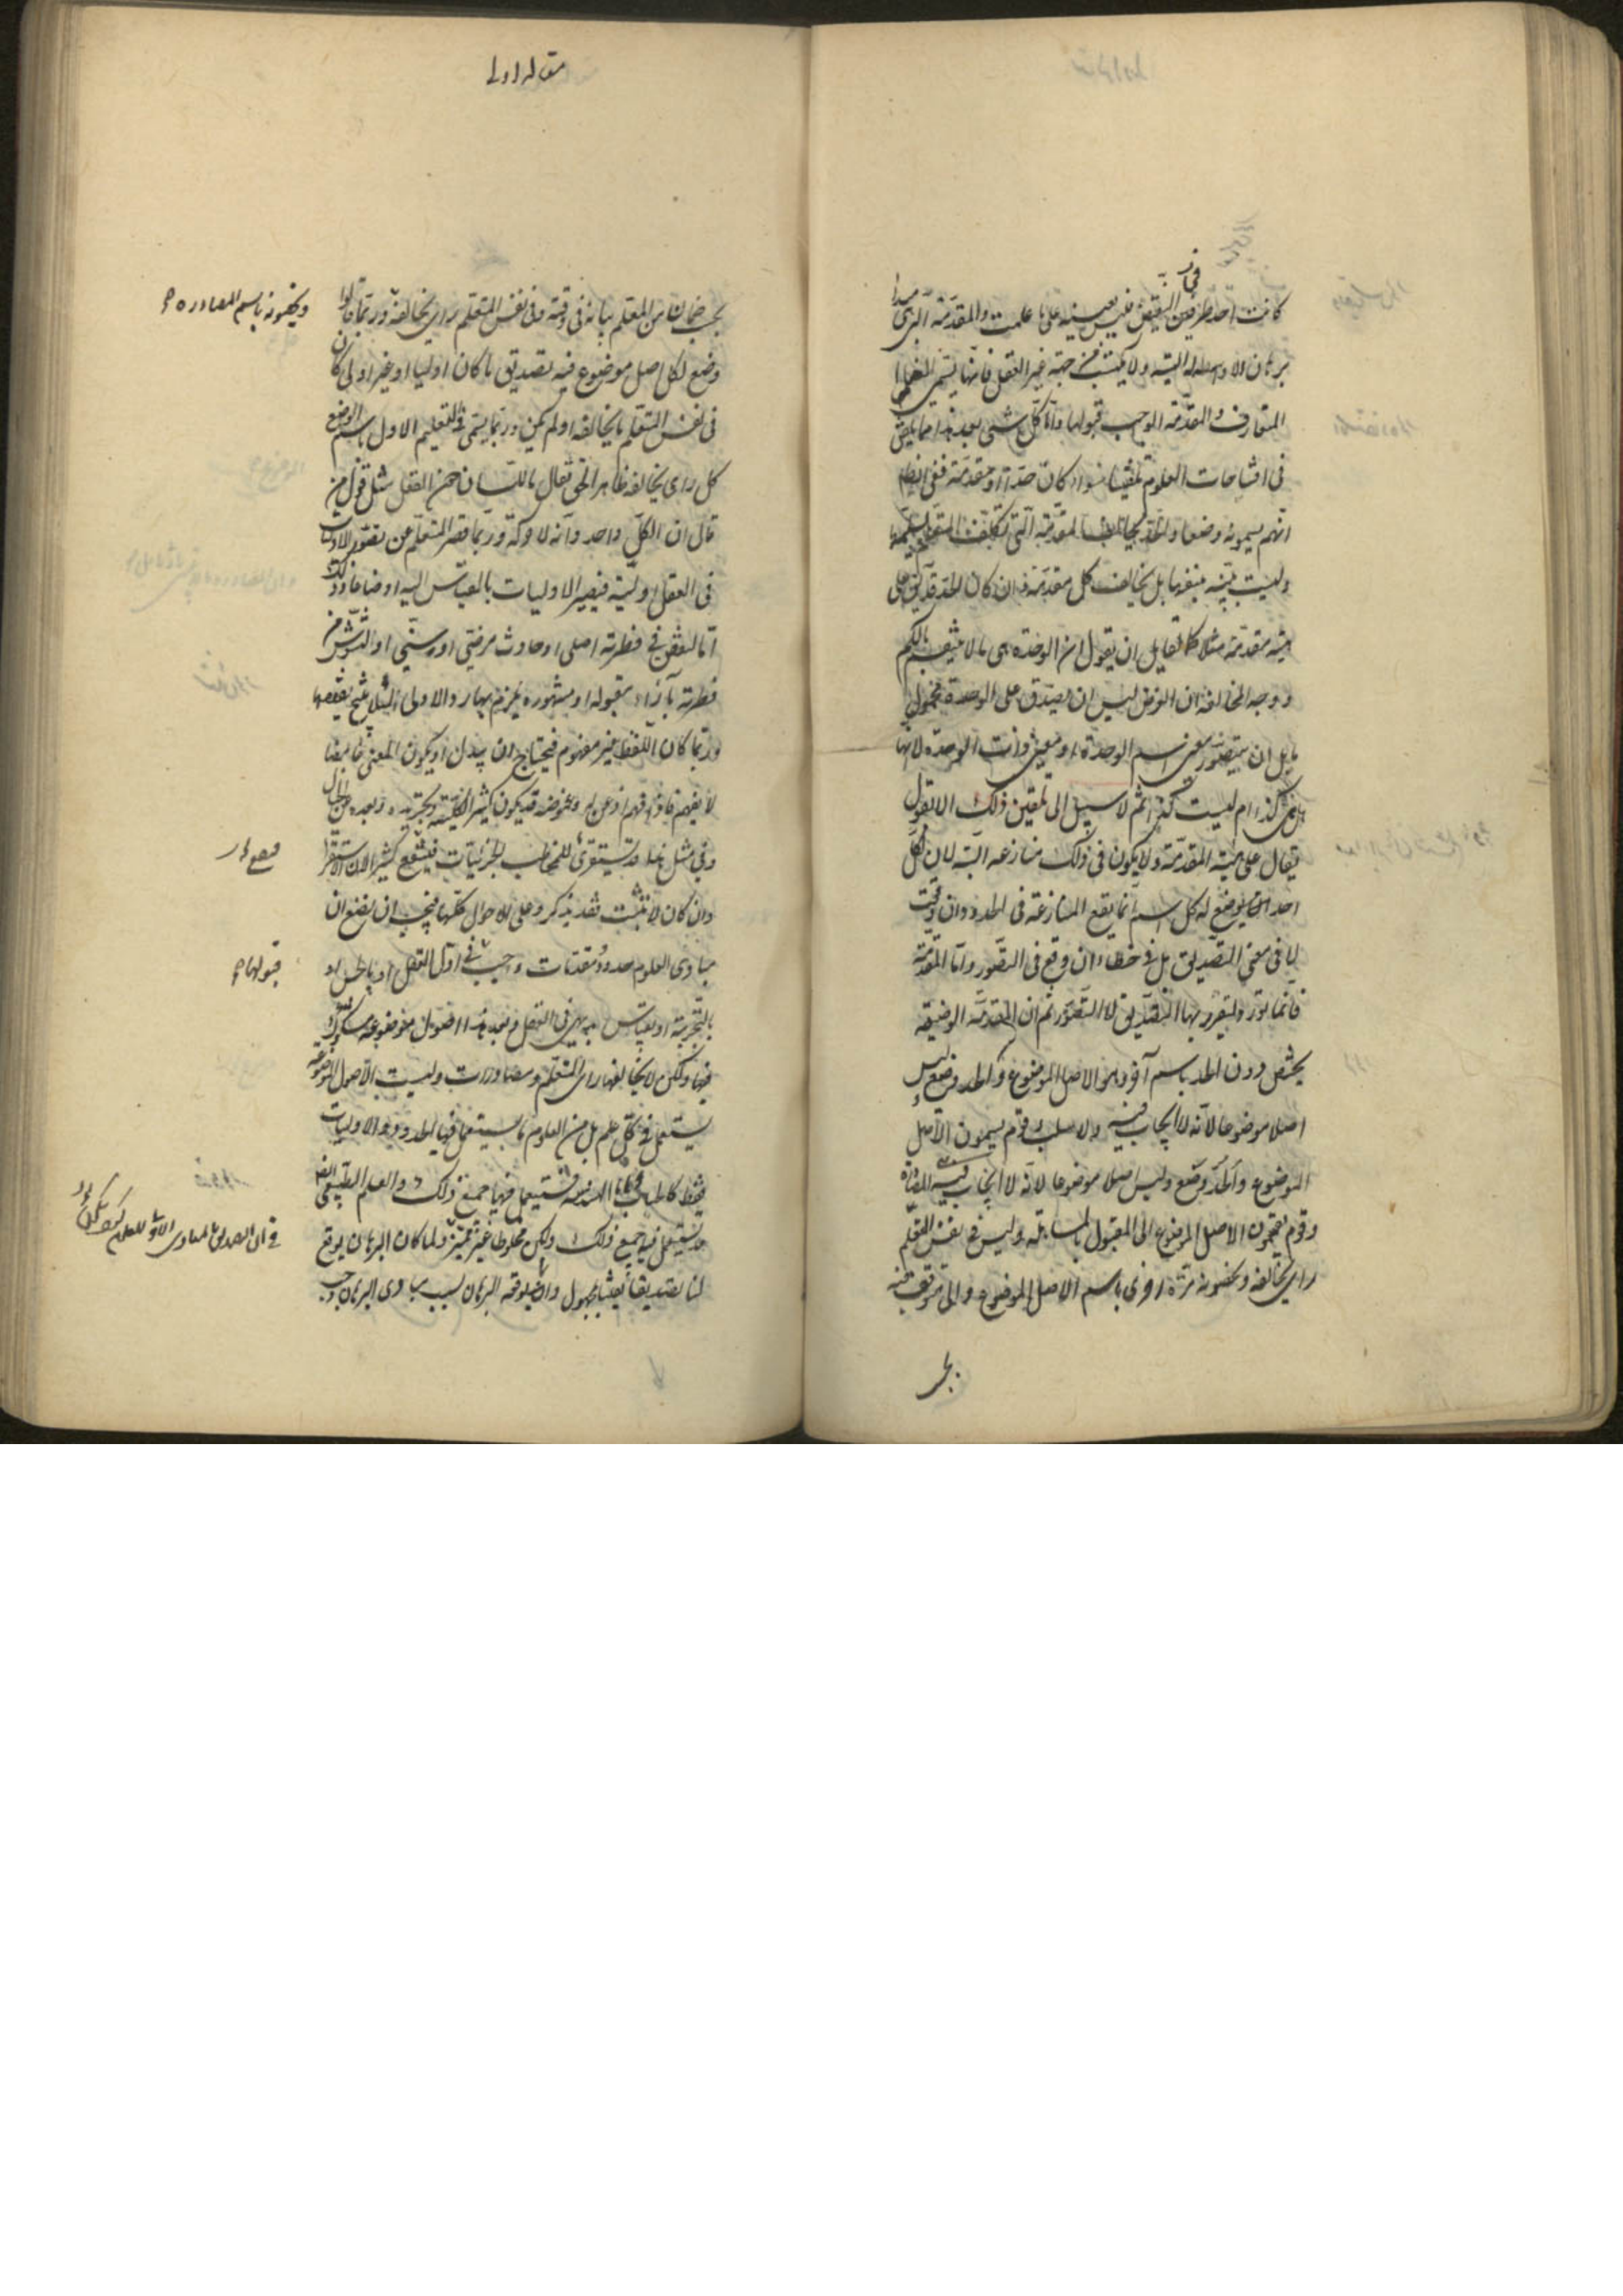 كانت احد طرفى النقيض فليس بعينه على ما علمت والمقدمة التى مبدا
برهان ولا وسط له البتة ولا يكتسب من جهة غير العقل فانها تسمى العلم
المتعارف والمقدمة الواجب قبولها واما كل شئ بعد هذا مما يلقن
فى افتتاحات العلوم تلقينا سواء كان حدا او مقدمة ففى الظاهر
انهم يسمونه وضعا المقدمة التى يكلف المتعلم تسلمها
وليست بينة بنفسها بل يخالف كل مقدمة فان كان الحد قد يلقن على
هيئة مقدمة مثلا كما لقايل ان يقول ان الوحدة هى ما لا ينقسم بالكم
ووجه المخالفة ان الغرض ليس ان يصدق على الوحدة محمول
ما بل ان يتصور معنى اسم الوحدة لانها
هل هى كذا ام ليست كذا ثم لا سبيل الى تلقين ذلك الا بقول
يقال على هيئة المقدمة ولا يكون فى ذلك منازعة البتة لان لكل
احد ان يضع له كل اسم انما يقع المنازعة فى الحدود وان وقعت
لا فى معنى التصديق بل فى خطاء ان وقع فى التصور واما المقدمة
فانما تورد ليقرر بها التصديق لا التصور ثم ان المقدمة الوضعية
يختص دون الحد باسم آخر وهو الاصل الموضوع والحد وضع وليس
اصلا موضوعا لانه لا ايجاب فيه ولا سلب وقوم يسمون الاصل
الموضوع والحد وضع وليس اصلا موضوعا لانه لا ايجاب فيه المصادرة
وقوم يقسمون الاصل الموضوع الى المقبول بالمساهلة وليس فى نفس المتعلم
راى يخالفه ويخصونه مرة اخرى باسم الاصل الموضوع والى متوقف فيه
مقاله اولى
بحسب ضمان من المعلم بيانه فى وقته وفى نفس المتعلم راى يخالفه وربما قالوا
ويخصونه باسم المصادره
وضع لكل اصل موضوع فيه تصديق ما كان اوليا او غير اولى كان
فى نفس المتعلم ما يخالفه او لم يكن وربما يسمى فى التعليم الاول باسم الوضع
كل راى يخالف ظاهر الحق يقال باللسان دون العقل مثل قول من
قال ان الكل واحد وانه لا حركة وربما قصر المتعلم عن تصور الاوليات
فى العقل اولية فيصير الاوليات بالقياس اليه اوضاعا وذلك
اما لنقص فى فطرته اصلى او حادث مرضى او سنى او لتشوش من
فطرته بآراء مقبولة او مشهورة يلزم بها رد الاولى لئلا ينتج نقيضها
وربما كان اللفظ غير مفهوم فيحتاج ان يبدل او يكون المعنى غامضا
لا يفهم فاذا فهم اذعن له وغموضه قد يكون كثيرا لكليته وتجريده وبعده عن الخيال
وفى مثل هذا قد يستقرئ للمخاطب الجزئيات فينتفع كثيرا لان الاستقراء
فصل
وان كان لا يثبت فقد يذكر وعلى الاحوال كلها فيجب ان يضع ان
مبادى العلوم حدود ومقدمات واجب فى اول العقل او بالحس او
قبولها
بالتجربة او بقياس بديهى فى العقل وبعد هذا اصول موضوعة مشكوك
فيها ولكن لا يخالفها راى المتعلم ومصادرات وليست الاصول الموضوعة
يستعمل فى كل علم بل من العلوم ما يستعمل فيها الحدود والاوليات
فقط كالحساب واما الهندسة فيستعمل فيها جميع ذلك والعلم الطبيعى ايضا
قد يستعمل فيه جميع ذلك ولكن مخلوطا غير مميز ولما كان البرهان يوقع
فى ان التصديق بالمبادى الاولى للعلم
لنا تصديقا يقينيا بمجهول وانما يوقعه البرهان بسبب مبادى البرهان وجب